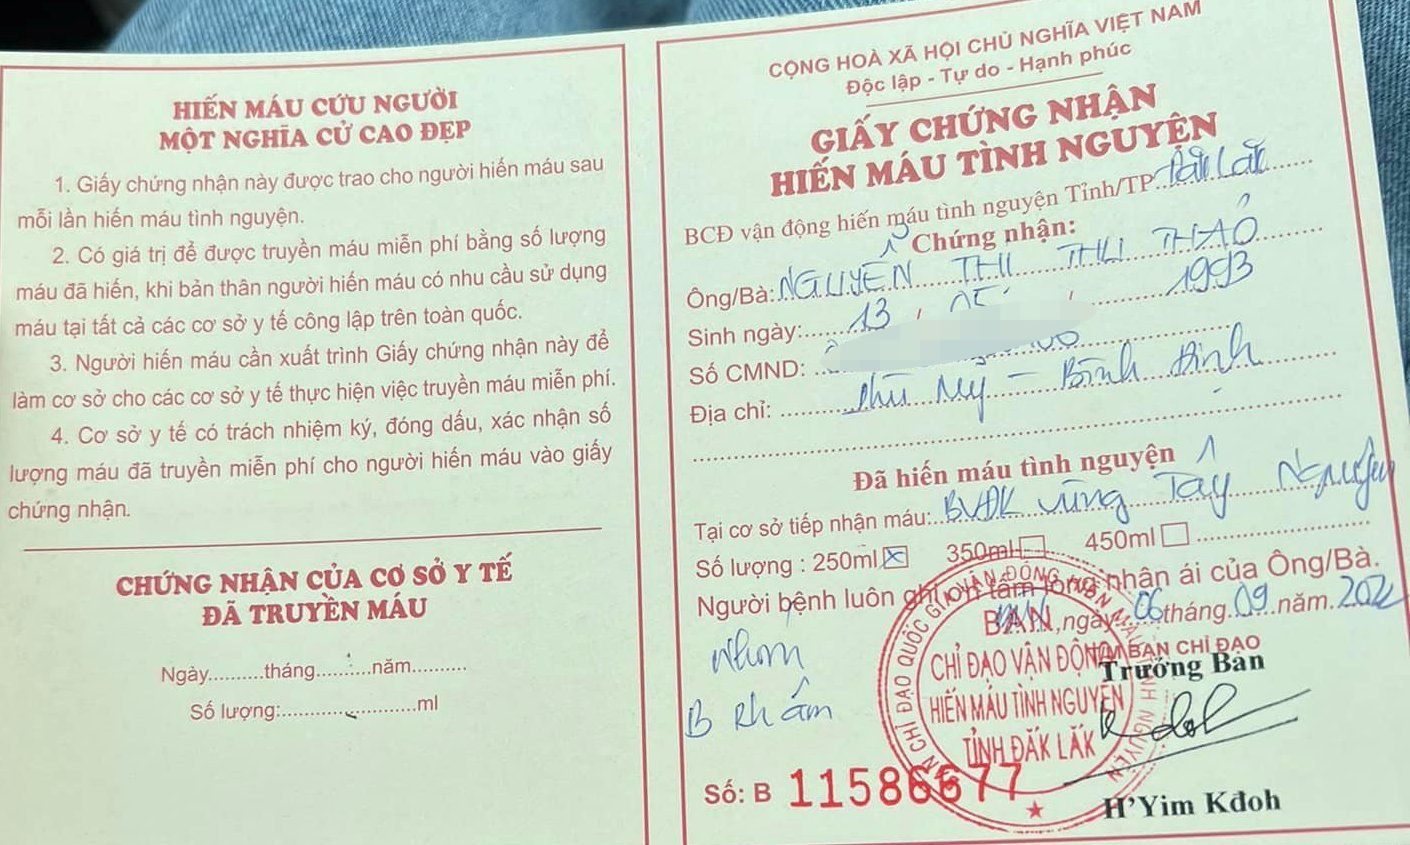 HIẾN MÁU CỨU NGƯỜI
MỘT NGHĨA CỬ CAO ĐẸP
1. Giấy chứng nhận này được trao cho người hiến máu sau
mỗi lần hiến máu tình nguyện.
2. Có giá trị để được truyền máu miễn phí bằng số lượng
máu đã hiến, khi bản thân người hiến máu có nhu cầu sử dụng
máu tại tất cả các cơ sở y tế công lập trên toàn quốc.
3. Người hiến máu cần xuất trình Giấy chứng nhận này để
làm cơ sở cho các cơ sở y tế thực hiện việc truyền máu miễn phí.
4. Cơ sở y tế có trách nhiệm ký, đóng dấu, xác nhận số
lượng máu đã truyền miễn phí cho người hiến máu vào giấy
chứng nhận.
CHỨNG NHẬN CỦA CƠ SỞ Y TẾ
ĐÃ TRUYỀN MÁU
Ngày..........tháng..........năm..........
Số lượng:........................ml
CỘNG HOÀ XÃ HỘI CHỦ NGHĨA VIỆT NAM
Độc lập - Tự do - Hạnh phúc
GIẤY CHỨNG NHẬN
HIẾN MÁU TÌNH NGUYỆN
BCĐ vận động hiến máu tình nguyện Tỉnh/TP Đắk Lắk
Chứng nhận:
Ông/Bà: NGUYỄN THỊ THU THẢO
Sinh ngày: 13 / / 1993
Số CMND:
Địa chỉ: Phù Mỹ - Bình Định
Đã hiến máu tình nguyện
Tại cơ sở tiếp nhận máu: BVĐK vùng Tây Nguyên
Số lượng : 250ml ☒ 350ml ☐ 450ml ☐
Người bệnh luôn ghi ơn tấm lòng nhân ái của Ông/Bà.
, ngày 06 tháng 09 năm 202
TM BAN CHỈ ĐẠO
Trưởng Ban
Nhóm
B Rh ấm
BAN
CHỈ ĐẠO VẬN ĐỘNG
HIẾN MÁU TÌNH NGUYỆN
TỈNH ĐẮK LẮK
Số: B 11586677
H'Yim Kđoh